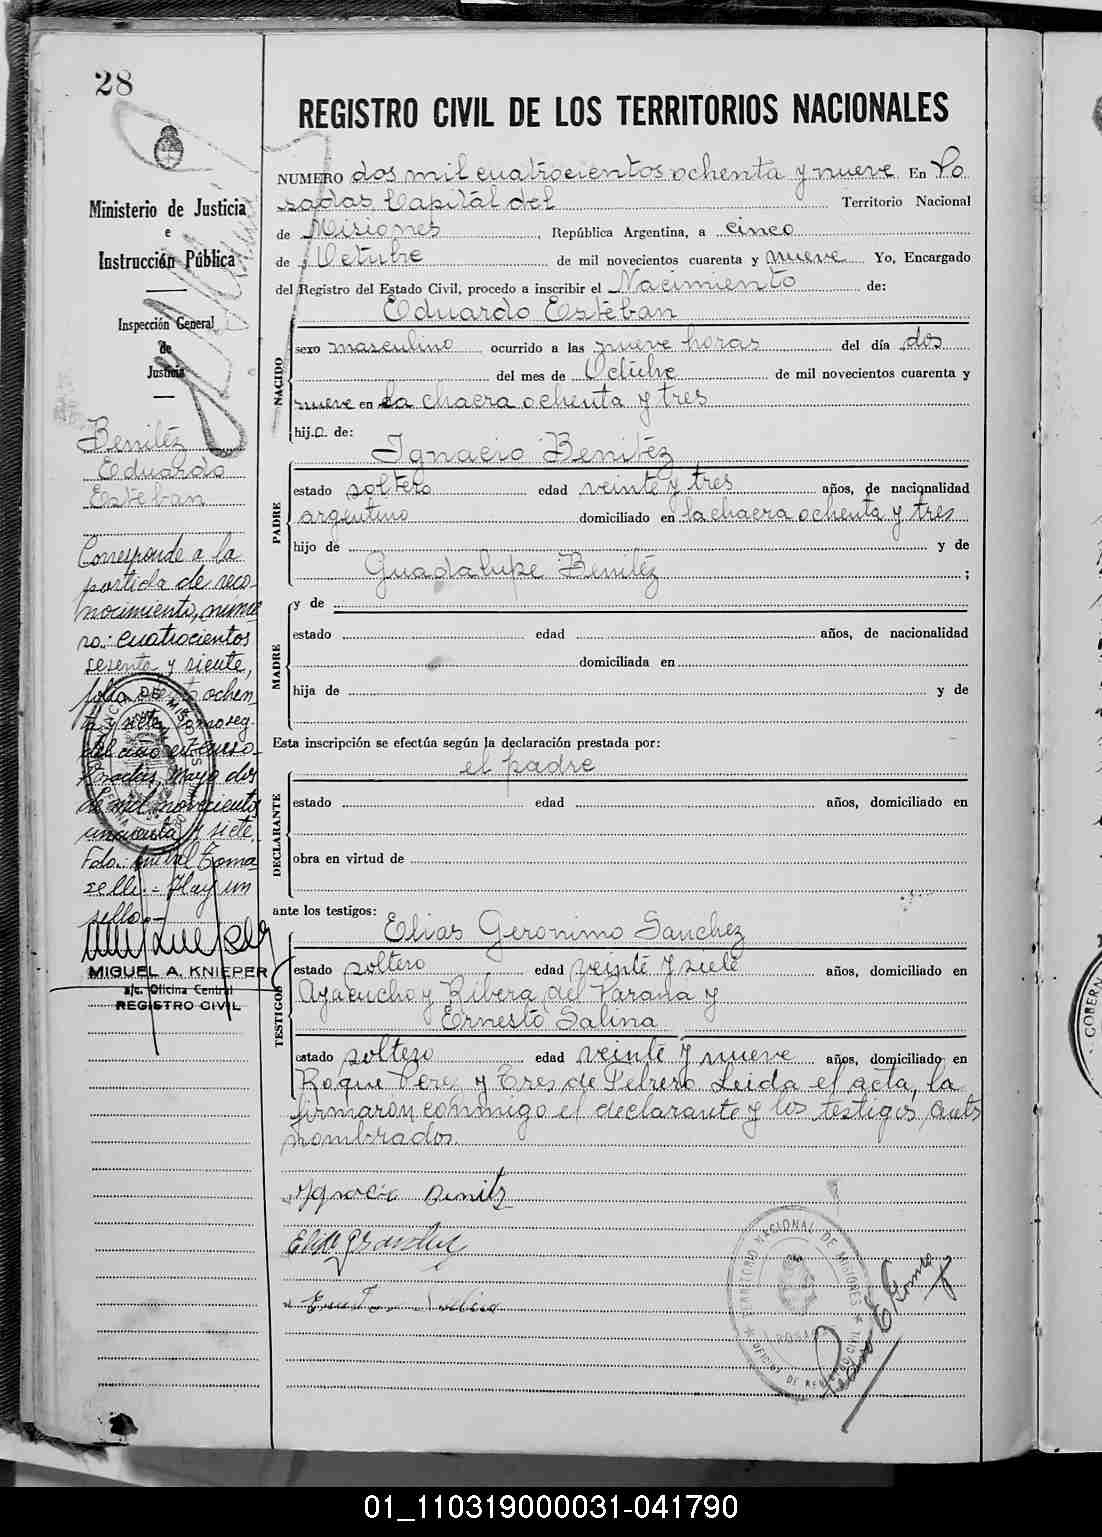 28
Ministerio de Justicia
e
Instrucción Pública
Inspección General
de
Justicia
Benitéz
Eduardo
Esteban
Corresponde a la
partida de reco-
nocimiento, núme
ro: cuatrocientos
sesenta y siete,
folio ochen
ta y siete, tomo seg.
del año en curso.-
Posadas, Mayo dos
de mil novecientos
cincuenta y siete.
Fdo.: Aníbal Toma-
selli.- Hay un
sello.-
MIGUEL A. KNIEPER
a/c. Oficina Central
REGISTRO CIVIL
REGISTRO CIVIL DE LOS TERRITORIOS NACIONALES
NUMERO dos mil cuatrocientos ochenta y nueve En Po
sadas Capital del Territorio Nacional
de Misiones, República Argentina, a cinco
de Octubre de mil novecientos cuarenta y nueve Yo, Encargado
del Registro del Estado Civil, procedo a inscribir el Nacimiento de:
Eduardo Esteban
NACIDO
sexo masculino ocurrido a las nueve horas del día dos
del mes de Octubre de mil novecientos cuarenta y
nueve en la chacra ochenta y tres
hijo de:
Ignacio Benitéz
PADRE
estado soltero edad veinte y tres años, de nacionalidad
argentino domiciliado en la chacra ochenta y tres
hijo de y de
Guadalupe Benitéz ;
MADRE
y de
estado edad años, de nacionalidad
domiciliada en
hija de y de
Esta inscripción se efectúa según la declaración prestada por:
el padre
DECLARANTE
estado edad años, domiciliado en
obra en virtud de
ante los testigos:
Elias Geronimo Sanchez
TESTIGOS
estado soltero edad veinte y siete años, domiciliado en
Ayacucho y Ribera del Parana y
Ernesto Salina
estado soltero edad veinte y nueve años, domiciliado en
Roque Perez y Tres de Febrero Leida el acta, la
firmaron conmigo el declarante y los testigos ants
nombrados.
Ignacio Benitz
TERRITORIO NACIONAL DE MISIONES
POSADAS
OFICINA DE REGISTRO CIVIL
GOBERN
01_110319000031-041790